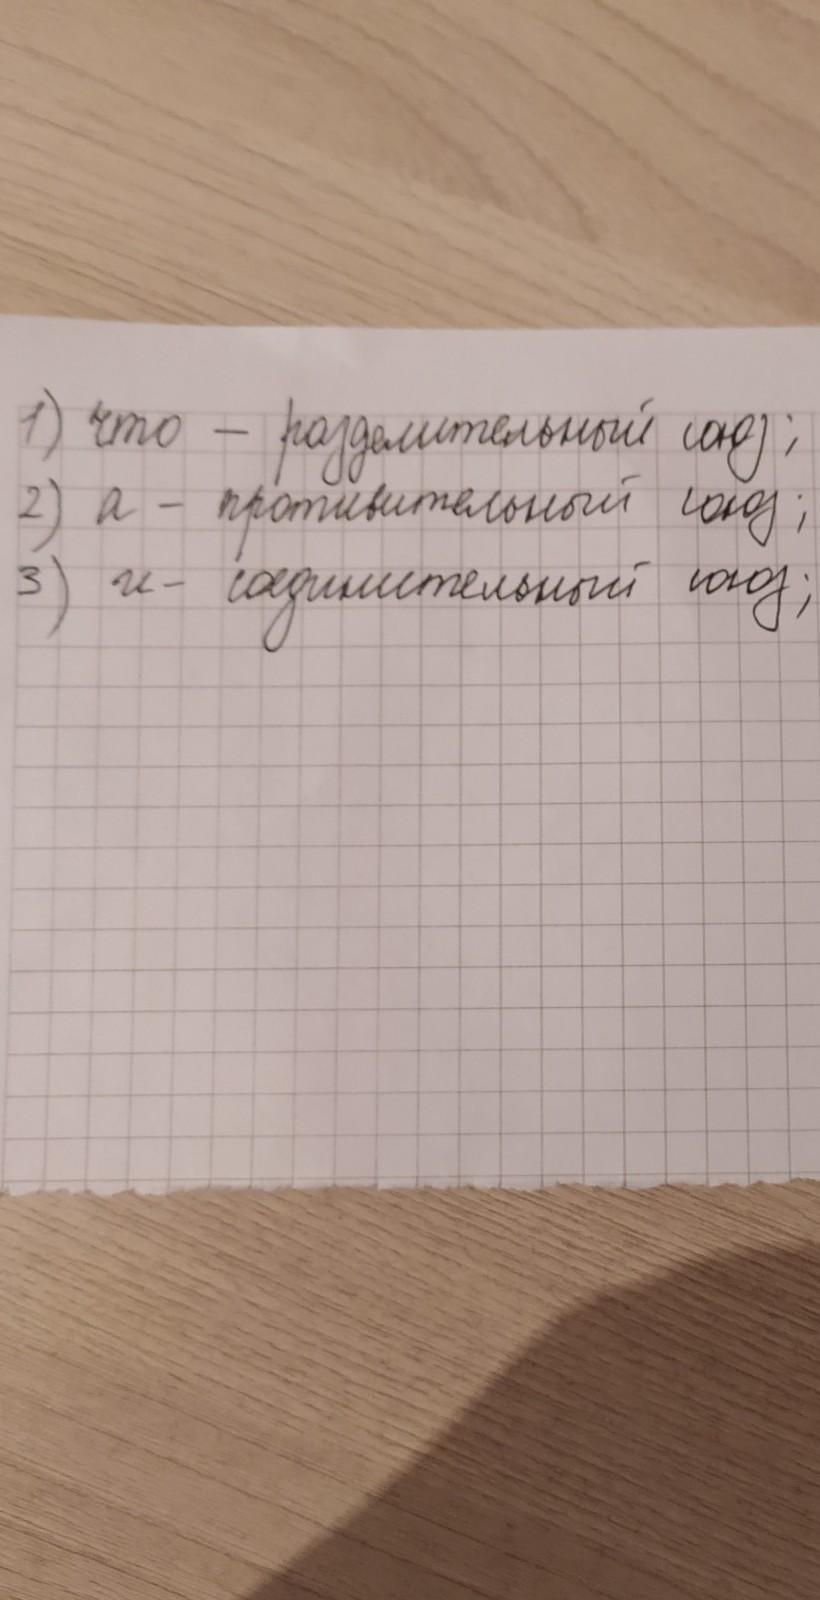 1) что – разделительный союз;
2) а – противительный союз;
3) и – соединительный союз;